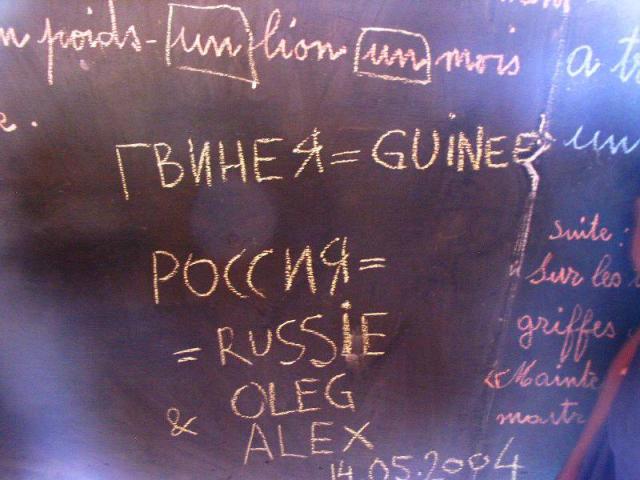 n poids- un lion un mois a
e.
ГВИНЕЯ = GUINEE un
РОССИЯ =
= RUSSIE
& OLEG
ALEX
14.05.2004
suite:
" Sur les
griffes
"Mainte
maitr